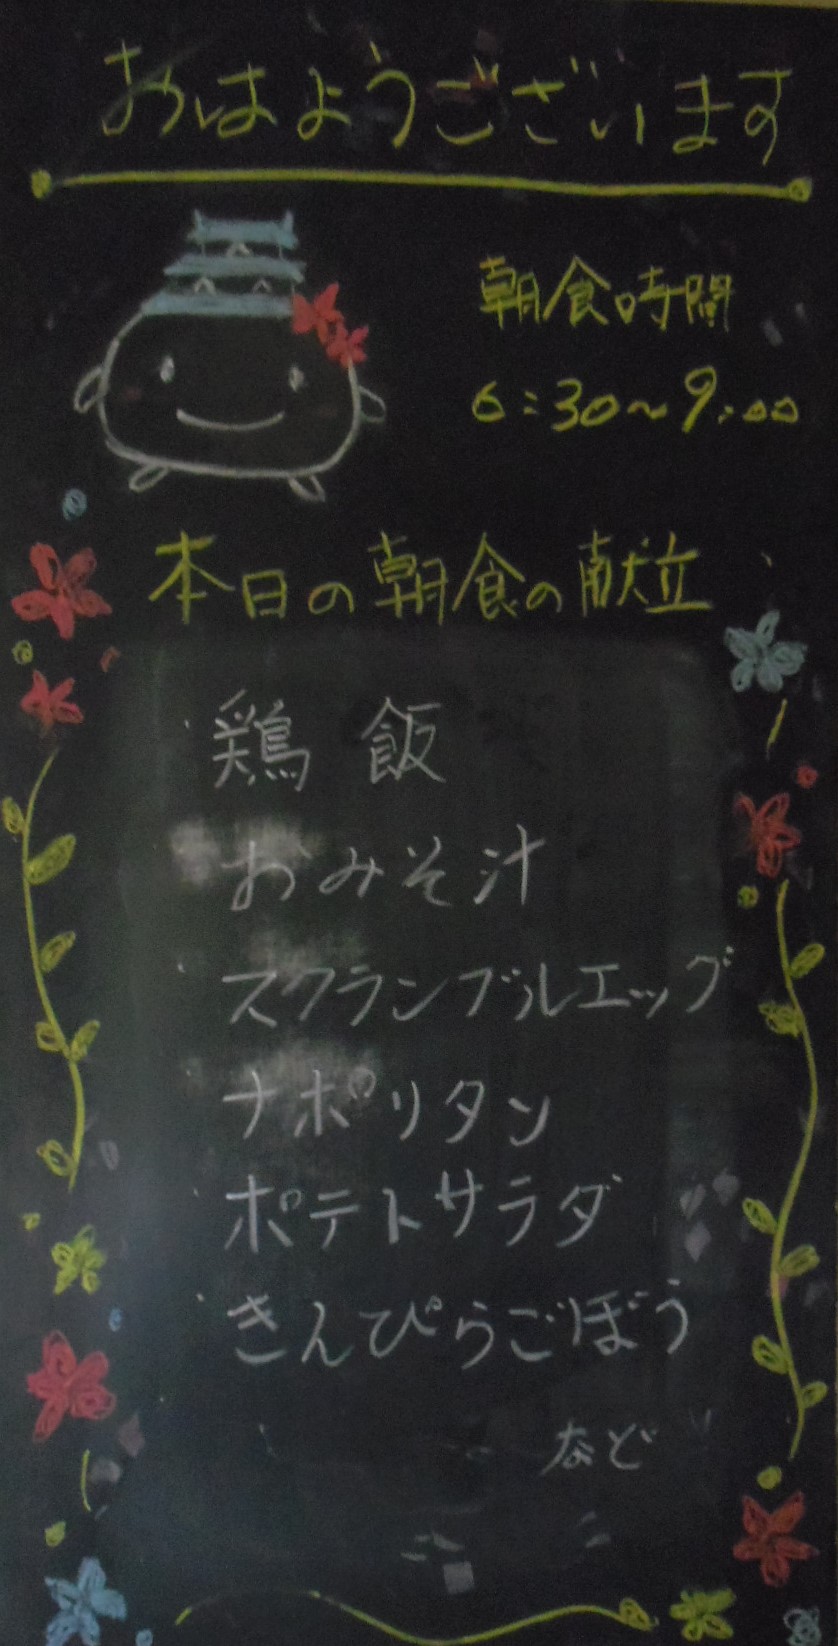 おはようございます
朝食時間
6:30〜9:00
本日の朝食の献立
・鶏飯
おみそ汁
・スクランブルエッグ
・ナポリタン
・ポテトサラダ
・きんぴらごぼう
など